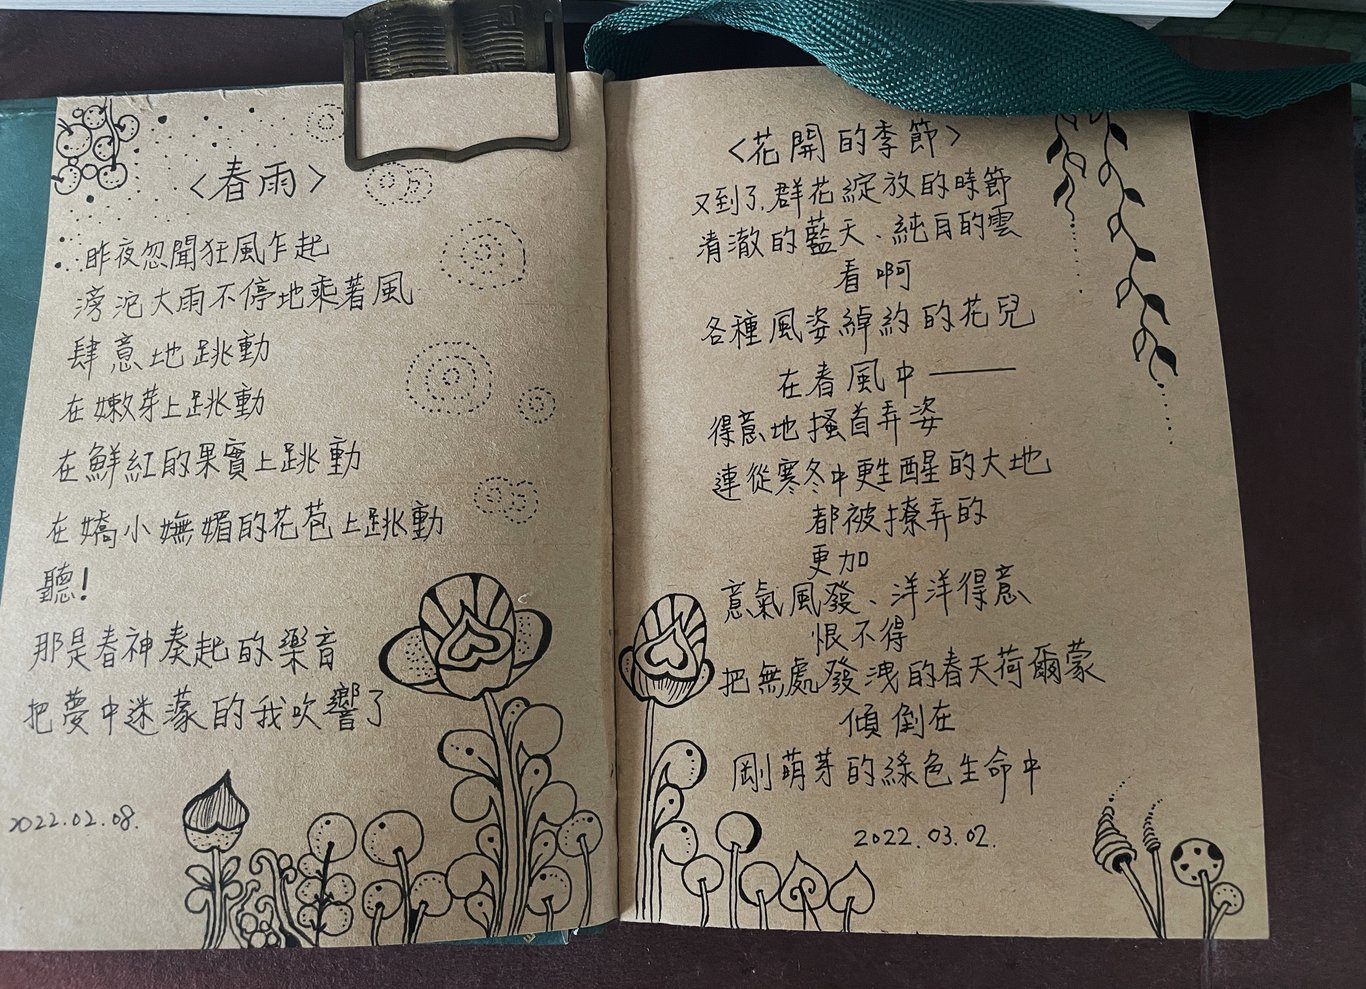 <春雨>
昨夜忽聞狂風乍起
滂沱大雨不停地乘著風
肆意地跳動
在嫩芽上跳動
在鮮紅的果實上跳動
在嬌小嫵媚的花苞上跳動
聽!
那是春神奏起的樂音
把夢中迷濛的我吹響了
2022.02.08.
<花開的季節>
又到了,群花綻放的時節
清澈的藍天、純白的雲
看啊
各種風姿綽約的花兒
在春風中——
得意地搔首弄姿
連從寒冬中甦醒的大地
都被撩弄的
更加
意氣風發、洋洋得意
恨不得
把無處發洩的春天荷爾蒙
傾倒在
剛萌芽的綠色生命中
2022.03.02.